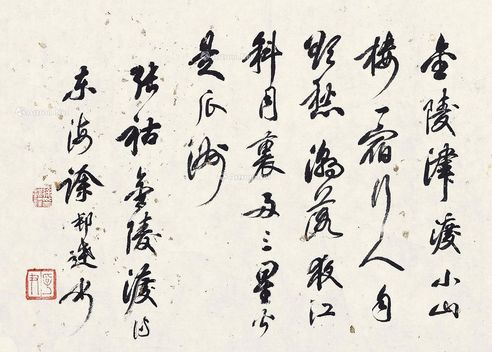 金陵津渡小山
樓一宿行人自
愁潮落夜江
斜月裏两三星火
是瓜洲
張祜金陵渡詩
東海徐邦達書